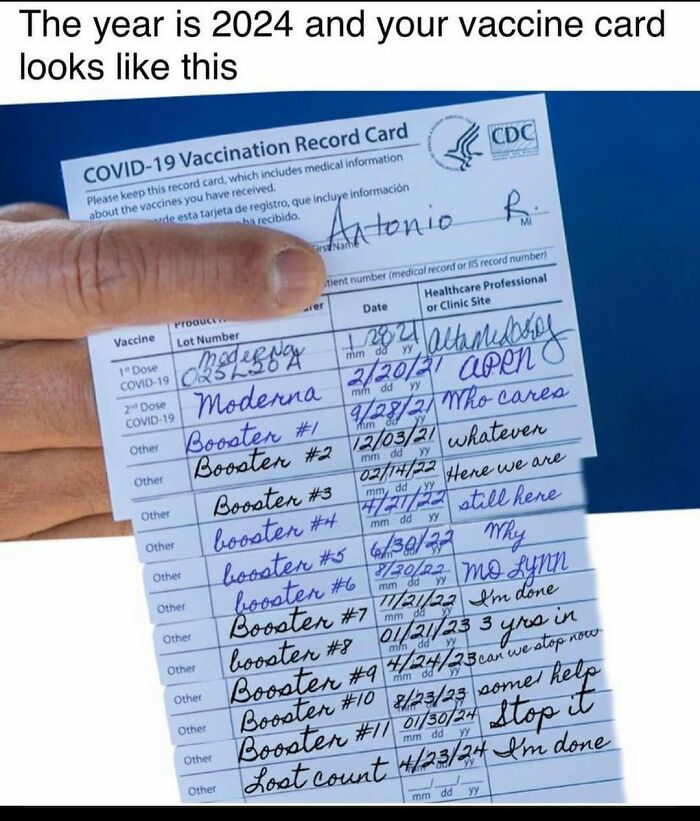 The year is 2024 and your vaccine card
looks like this
COVID-19 Vaccination Record Card
CDC
Please keep this record card, which includes medical information
about the vaccines you have received.
de esta tarjeta de registro, que incluye información
ha recibido.
Antonio R.
First Name MI
tient number (medical record or IIS record number)
Vaccine Lot Number Date Healthcare Professional
or Clinic Site
1st Dose
COVID-19 moderna 1 28 21
mm dd yy
2nd Dose
COVID-19 Moderna 2/20/21
mm dd yy
Other Booster #1 9/28/21 Who cares
mm dd yy
Other Booster #2 12/03/21 whatever
mm dd yy
Other Booster #3 02/14/22 Here we are
mm dd yy
Other booster #4 4/21/22 still here
mm dd yy
Other booster #5 6/30/22 Why
Other booster #6 8/20/22 mo Lynn
mm dd yy
Other Booster #7 11/21/22 I'm done
mm dd yy
Other booster #8 01/21/23 3 yrs in
mm dd yy
Other Booster #9 4/24/23 can we stop now
mm dd yy
Other Booster #10 8/23/23 some help
Other Booster #11 01/30/24 Stop it
mm dd yy
Other Lost count 4/23/24 I'm done
mm dd yy